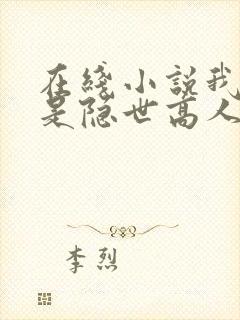 在綫小説我
是隐世高人
李烈